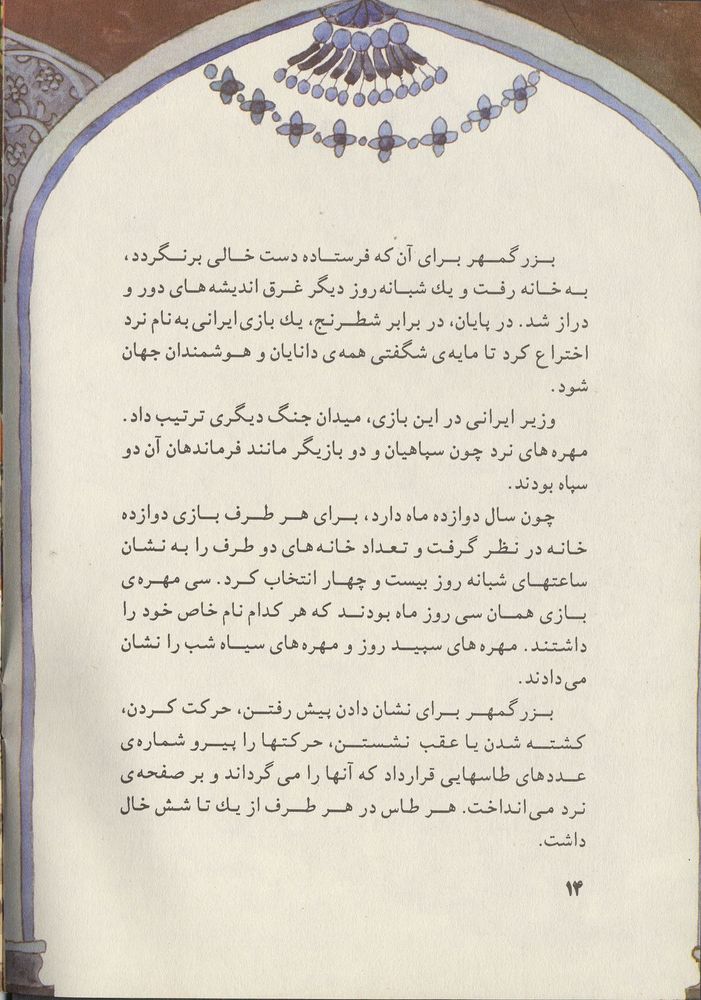 بزرگمهر برای آن که فرستاده دست خالی برنگردد،
به خانه رفت و یك شبانه‌روز دیگر غرق اندیشه‌های دور و
دراز شد. در پایان، در برابر شطرنج، یك بازی ایرانی به نام نرد
اختراع کرد تا مایه‌ی شگفتی همه‌ی دانایان و هوشمندان جهان
شود.
وزیر ایرانی در این بازی، میدان جنگ دیگری ترتیب داد.
مهره‌های نرد چون سپاهیان و دو بازیگر مانند فرماندهان آن دو
سپاه بودند.
چون سال دوازده ماه دارد، برای هر طرف بازی دوازده
خانه در نظر گرفت و تعداد خانه‌های دو طرف را به نشان
ساعتهای شبانه روز بیست و چهار انتخاب کرد. سی مهره‌ی
بازی همان سی روز ماه بودند که هر کدام نام خاص خود را
داشتند. مهره‌های سپید روز و مهره‌های سیاه شب را نشان
می‌دادند.
بزرگمهر برای نشان دادن پیش رفتن، حرکت کردن،
کشته شدن یا عقب نشستن، حرکتها را پیرو شماره‌ی
عددهای طاسهایی قرارداد که آنها را می‌گرداند و بر صفحه‌ی
نرد می‌انداخت. هر طاس در هر طرف از یك تا شش خال
داشت.
۱۴